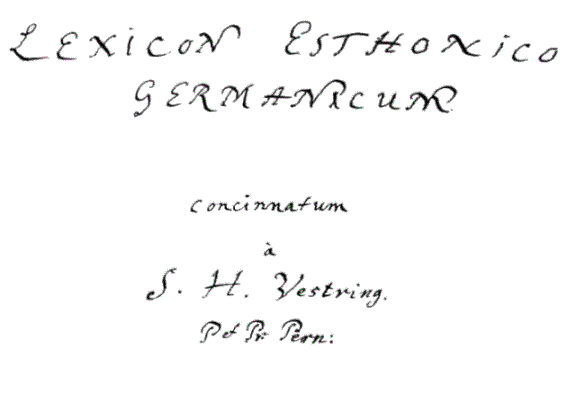 LEXICON ESTHONICO
GERMANICUM
concinnatum
à
S. H. Vestring.
P et Pr: Pern: